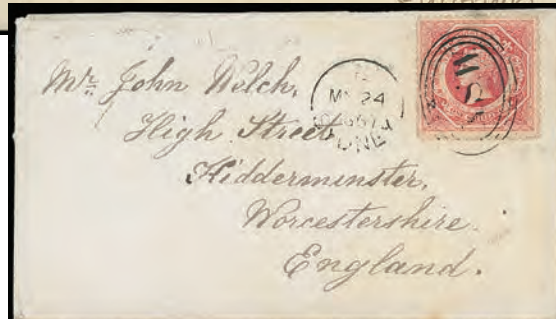 Mr. John Welch,
High Street
Kidderminster,
Worcestershire.
England.
MY 24
SYDNEY